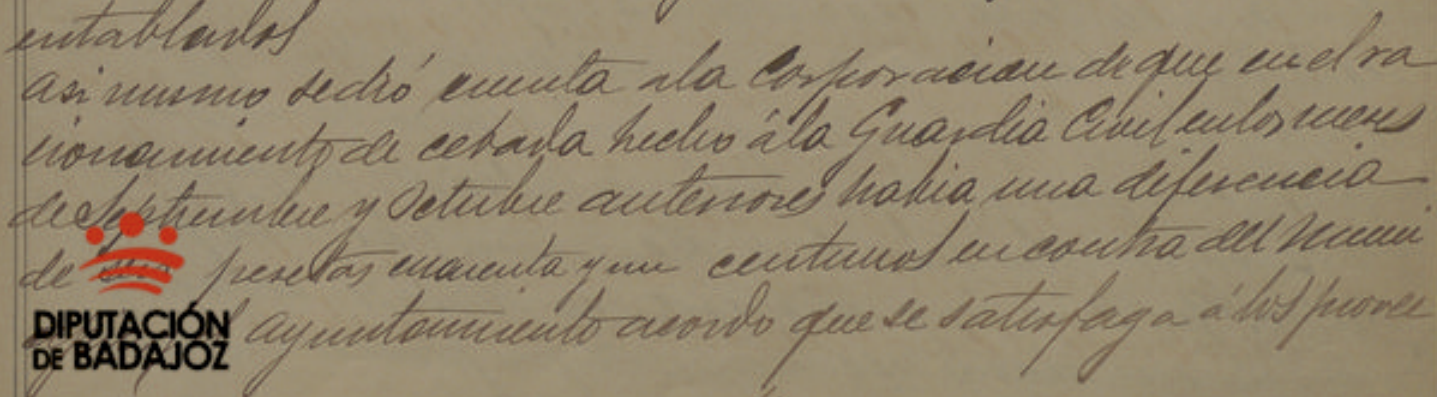 entablados
asi mismo se dió cuenta a la Corporacion de que en el ra
cionamiento de cebada hecho á la Guardia Civil en los meses
de Septiembre y Octubre anteriores habia una diferencia
de pesetas cuarenta y un centimos en contra del Muni
ayuntamiento acordo que se satisfaga á los provee
DIPUTACIÓN
DE BADAJOZ